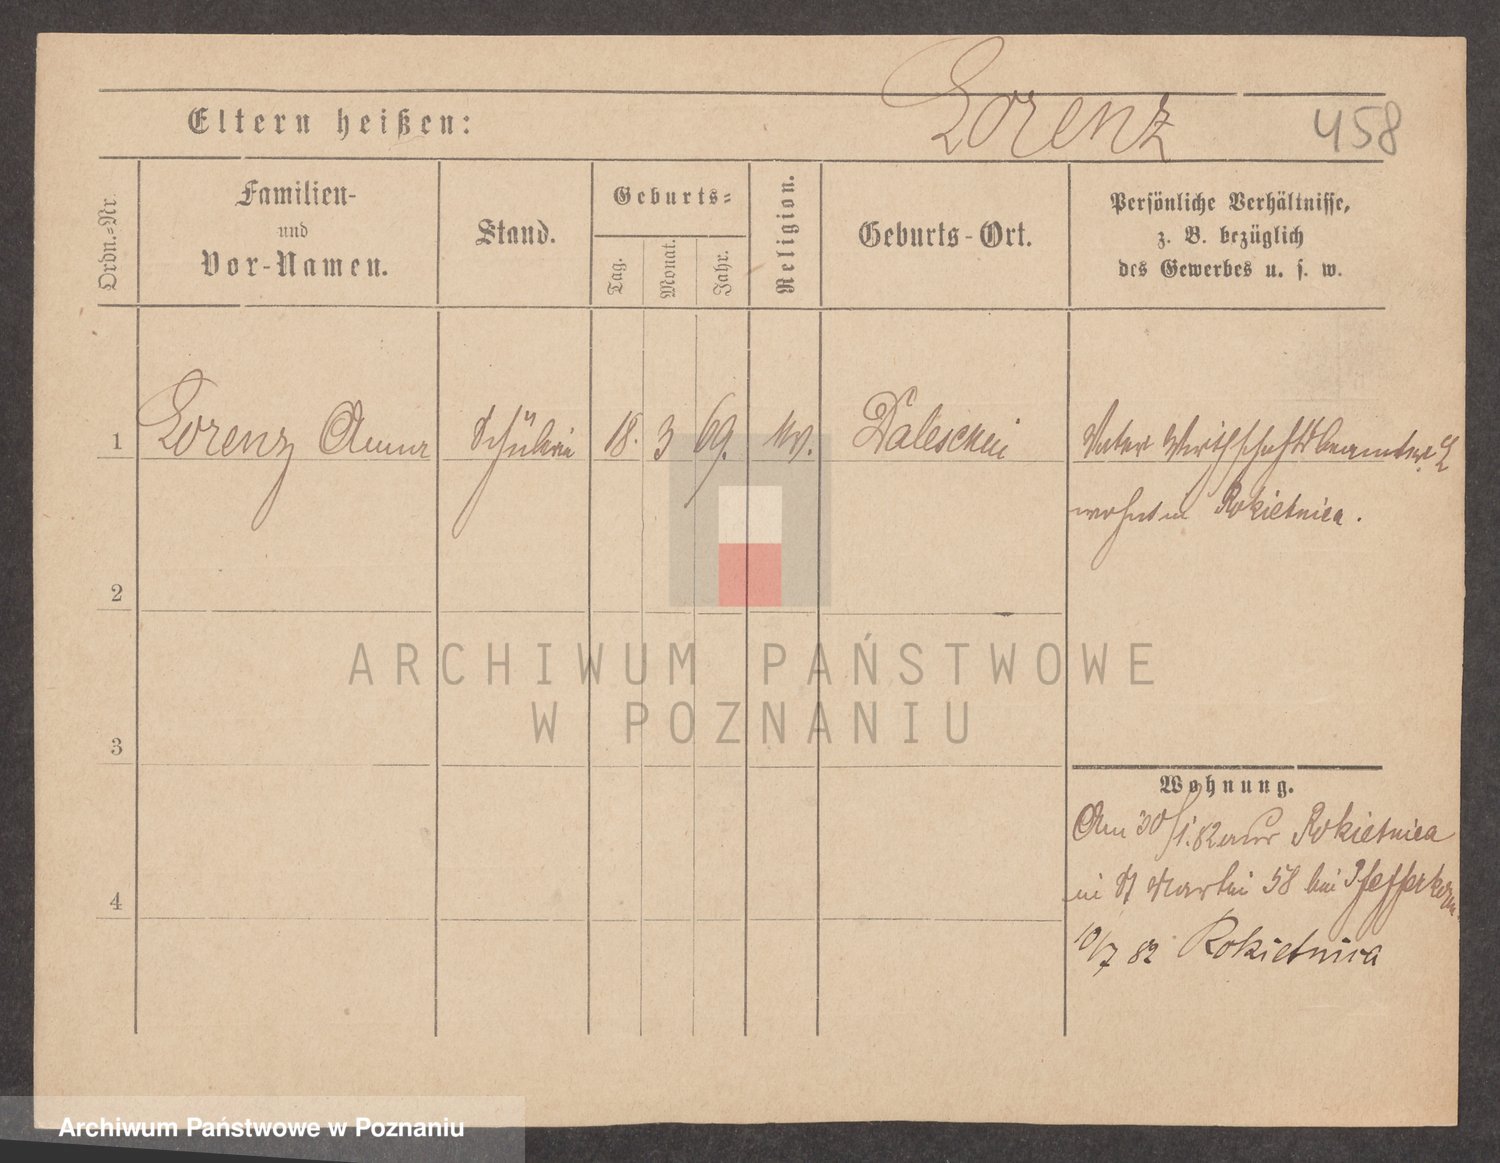 Lorenz
458
Eltern heißen:
Ordn.-Nr
Familien-
und
Vor-Namen.
Stand.
Geburts-
Tag.
Monat.
Jahr.
Religion.
Geburts-Ort.
Persönliche Verhältnisse,
z. B. bezüglich
des Gewerbes u. s. w.
1 Lorenz Anna Schülerin 18. 3 69. Vater Wirthschaftsbeamter
wohnt in Rokietnica.
2
3
4
Wohnung.
Am 30/1.82 aus Rokietnica
in St Martin 58 bei Pfefferkorn
10/7 82 Rokietnica
ARCHIWUM PAŃSTWOWE
W POZNANIU
Archiwum Państwowe w Poznaniu